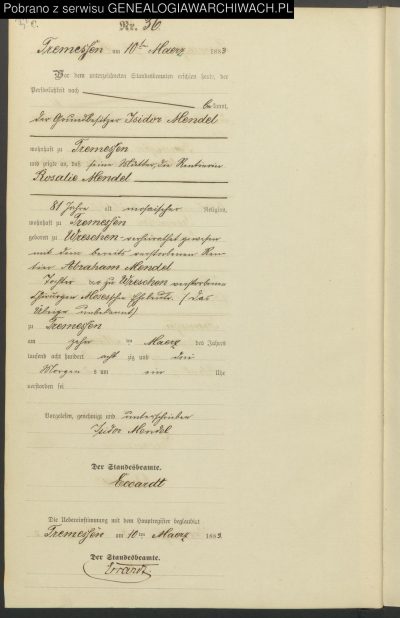 Pobrano z serwisu GENEALOGIAWARCHIWACH.PL
Nr. 36.
Tremessen am 10ten Maerz 1883
Vor dem unterzeichneten Standesbeamten erschien heute, der
Persönlichkeit nach
bekannt,
der Grundbesitzer Isidor Mendel
wohnhaft zu Tremessen
und zeigte an, daß seine Mutter, die Rentierin
Rosalie Mendel
81 Jahre alt mosaischer Religion,
wohnhaft zu Tremessen
geboren zu Wreschen verheirathet gewesen
mit dem bereits verstorbenen Ren-
tier Abraham Mendel
Tochter der zu Wreschen verstorbenen
Moses'schen Eheleute. (Das
Übrige unbekannt)
zu Tremessen
am zehn ten Maerz des Jahres
tausend acht hundert acht zig und drei
Morgens um ein Uhr
verstorben sei
Vorgelesen, genehmigt und unterschrieben
Isidor Mendel
Der Standesbeamte.
Eccardt
Die Uebereinstimmung mit dem Hauptregister beglaubigt
Tremessen am 10ten Maerz 1883.
Der Standesbeamte.
Eccardt